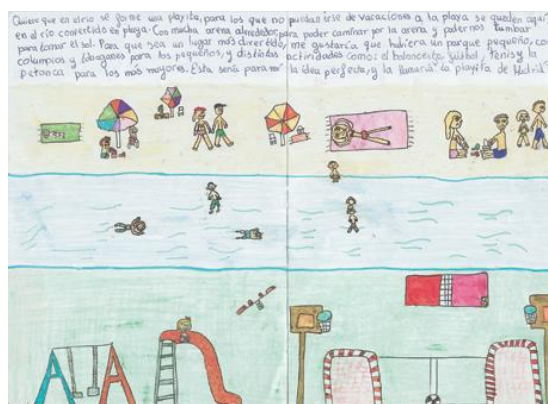 Quiero que en el río se forme una playita, para los que no puedan irse de vacaciones a la playa se queden aquí
en el río convertido en playa. Con mucha arena alrededor, para poder caminar por la arena y podernos tumbar
para tomar el sol. Para que sea un lugar más divertido, me gustaría que hubiera un parque pequeño, con
columpios y toboganes para los pequeños, y distintas actividades como: el baloncesto, fútbol, tenis y la
petanca para los más mayores. Esta sería para mí la idea perfecta, y la llamaría "la playita de Madrid".